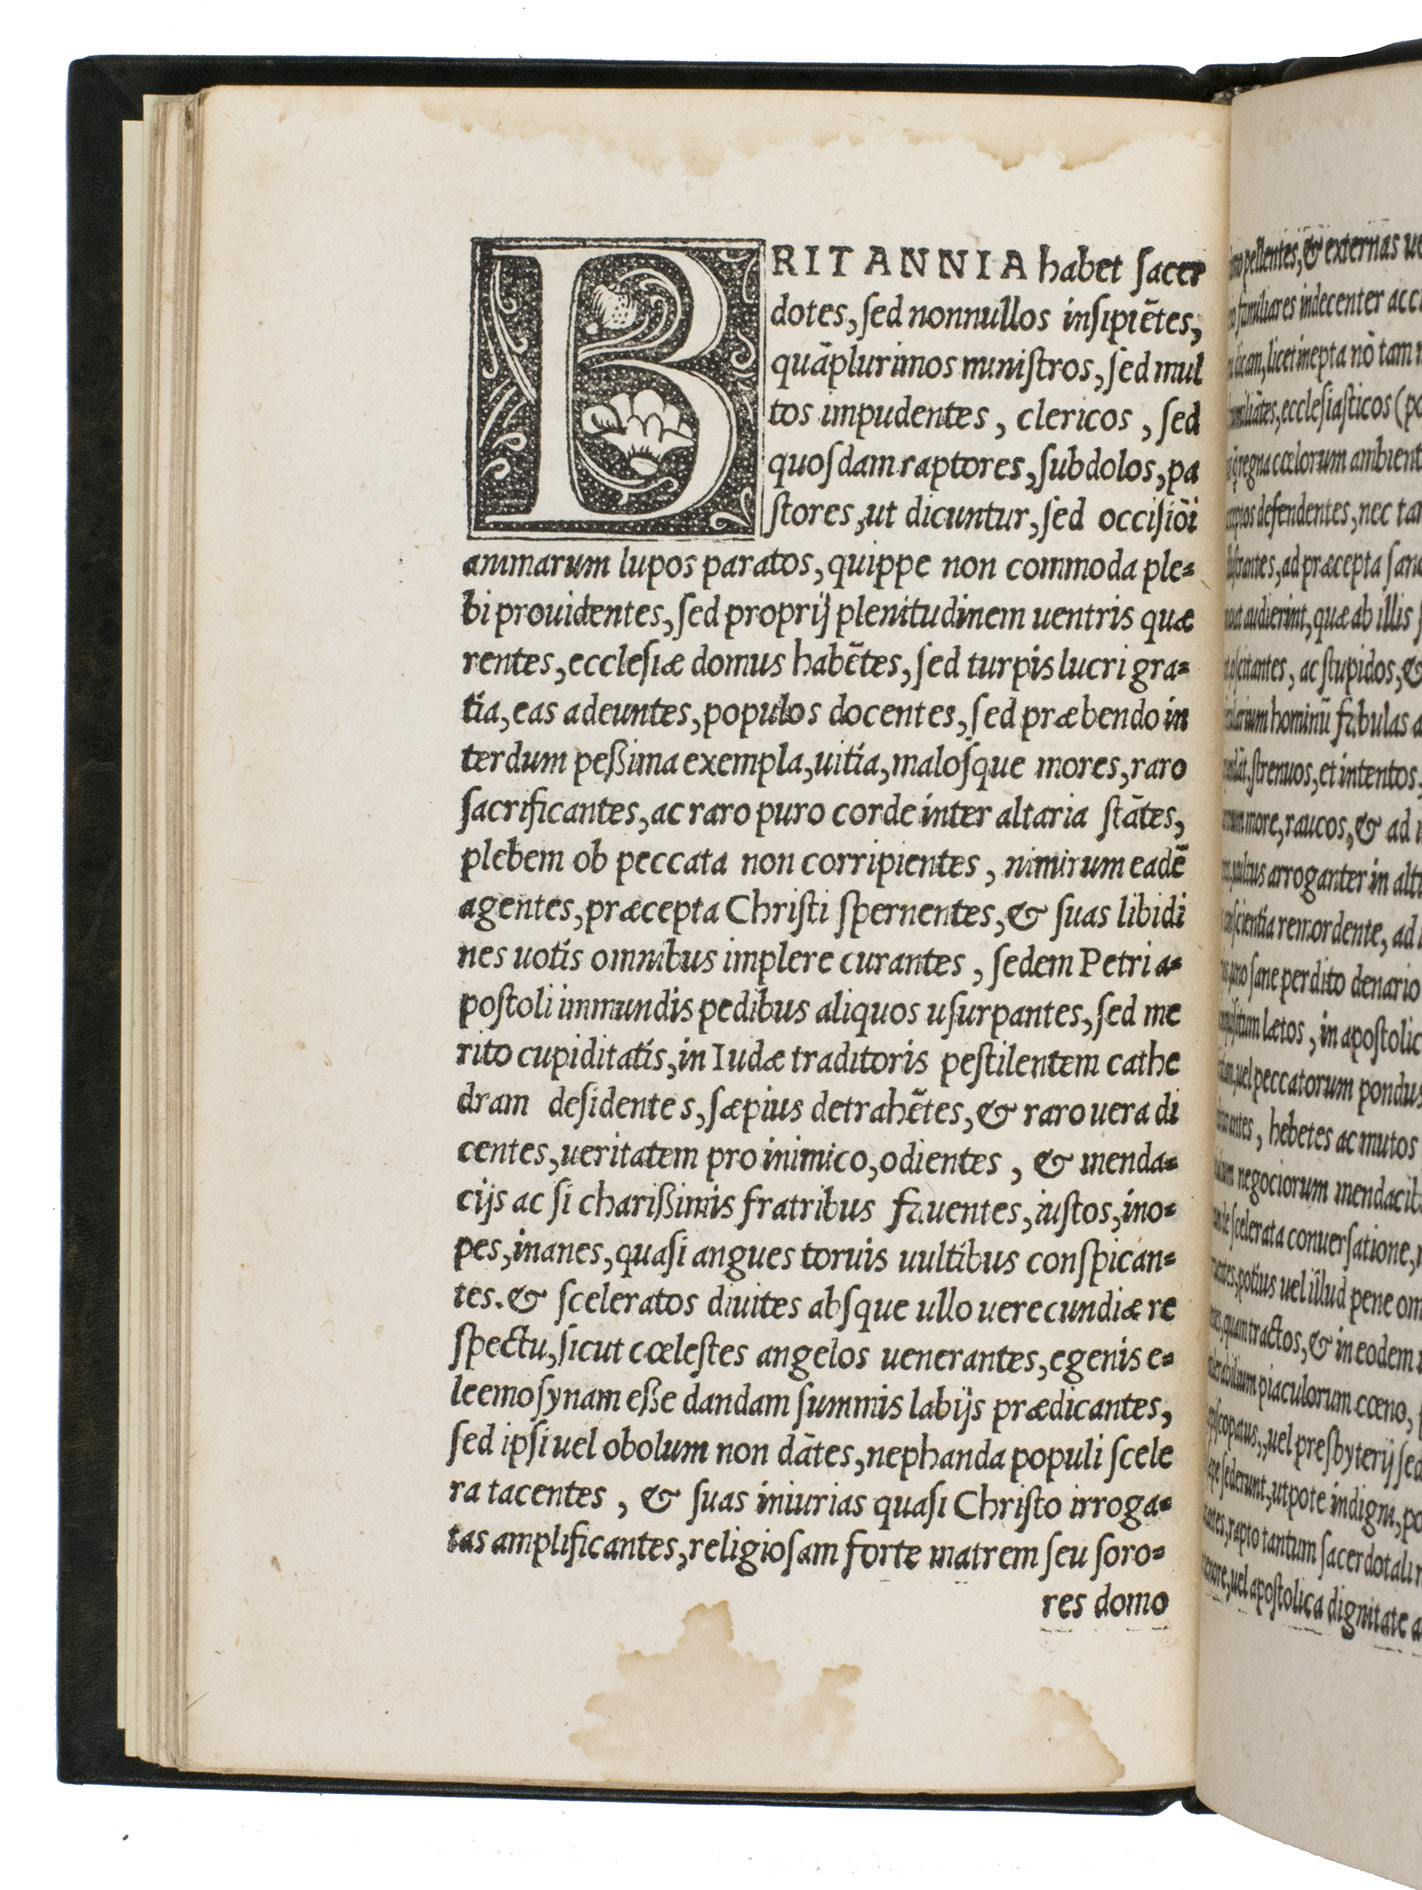 BRITANNIA habet ſacer
dotes, ſed nonnullos inſipiẽtes,
quãplurimos miniſtros, ſed mul
tos impudentes, clericos, ſed
quoſdam raptores, ſubdolos, pa
ſtores, ut dicuntur, ſed occiſiõi
animarum lupos paratos, quippe non commoda ple-
bi prouidentes, ſed proprij plenitudinem uentris quæ
rentes, eccleſiæ domus habẽtes, ſed turpis lucri gra-
tia, eas adeuntes, populos docentes, ſed præbendo in
terdum peßima exempla, uitia, maloſque mores, raro
ſacrificantes, ac raro puro corde inter altaria ſtãtes,
plebem ob peccata non corripientes, nimirum eadẽ
agentes, præcepta Chriſti ſpernentes, & ſuas libidi
nes uotis omnibus implere curantes, ſedem Petri a-
poſtoli immundis pedibus aliquos uſurpantes, ſed me
rito cupiditatis, in Iudæ traditoris peſtilentem cathe
dram deſidentes, ſæpius detrahẽtes, & raro uera di
centes, ueritatem pro inimico, odientes, & menda-
cijs ac ſi charißimis fratribus fauentes, iuſtos, ino-
pes, inanes, quaſi angues toruis uultibus conſpican-
tes. & ſceleratos diuites abſque ullo uerecundiæ re
ſpectu, ſicut cœleſtes angelos uenerantes, egenis e-
leemoſynam eße dandam ſummis labijs prædicantes,
ſed ipſi uel obolum non dãtes, nephanda populi ſcele
ra tacentes, & ſuas iniurias quaſi Chriſto irroga-
tas amplificantes, religioſam forte matrem ſeu ſoro-
res domo
pellentes, & externas
familiares indecenter
licet inepta nõ tam
eccleſiaſticos
regna cœlorum ambient
defendentes, nec
ad præcepta
audierint, quæ ab illis
ac ſtupidos, &
hominũ fabulas
ſtrenuos, et intentos
more, raucos, & ad
arroganter in
remordente, ad
ſane perdito denario
lætos, in
uel peccatorum pondus
hebetes ac mutos
negociorum
ſcelerata conuerſatione,
potius uel illud pene
tractos, & in eodem
piaculorum cœno,
uel preſbyterij
ſederunt, utpote indigni,
rapto tantum ſacerdotali
uel apoſtolica dignitate